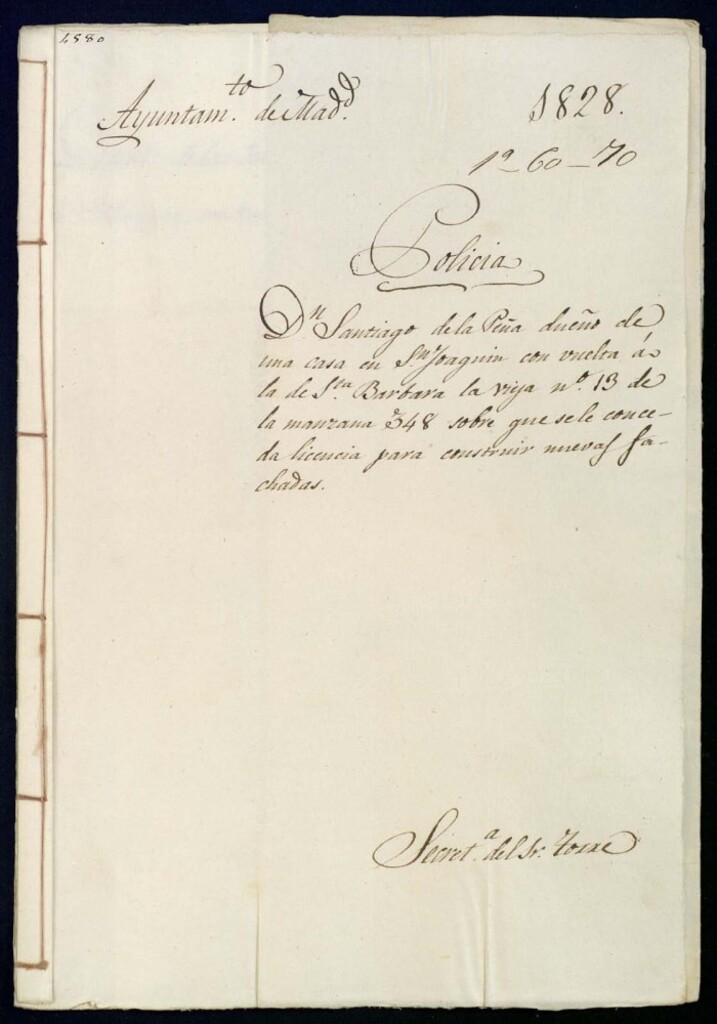 1880
Ayuntam.to de Madd.
1828.
1ª-60-70
Policia
Dn Santiago de la Peña dueño de
una casa en Sn. Joaquin con vuelta á-
la de Sta Barbara la vieja nº. 13 de
la manzana 348 sobre que se le conce-
da licencia para construir nuevas fa-
chadas.
Secret.a del Sr. Torre